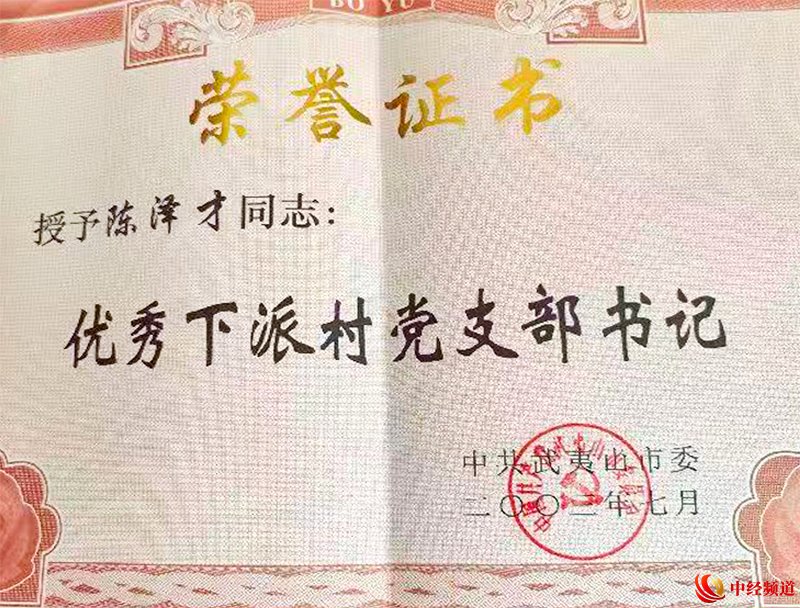 BO YU
荣誉证书
授予陈泽才同志:
优秀下派村党支部书记
中共武夷山市委
二〇〇二年七月
中经频道